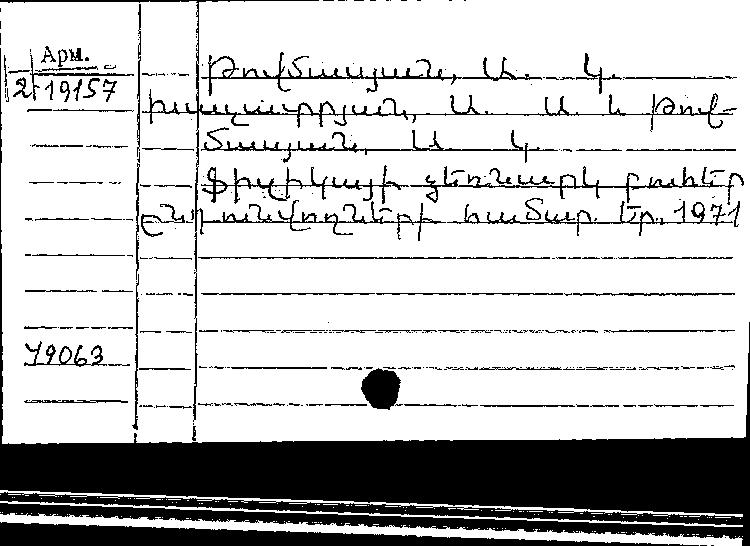 Арм.
2-19157
Թովմասյան, Ա. Կ.
Խաչատրյան, Ա. Ա. և Թով-
մասյան, Ա. Կ.
Ֆիզիկայի ձեռնարկ բուհեր
ընդունվողների համար. Եր. 1971
79063